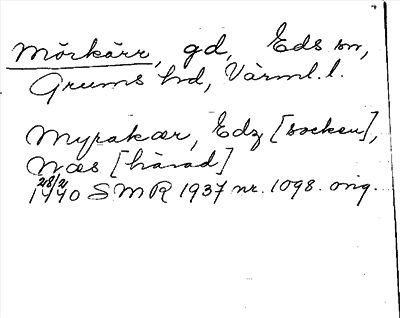 Mörkärr, gd, Eds sn,
Grums hd, Värml. l.
Myrakær, Edz [socken],
Næs [härad]
28/2
1440 SMR 1937 nr. 1098. orig.